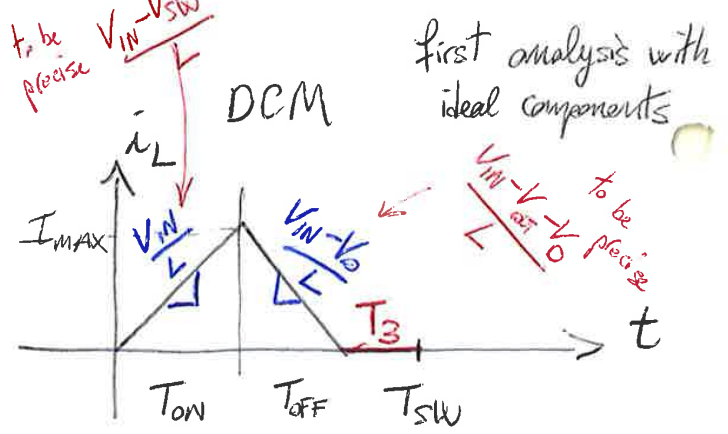 to be precise
VIN-VSW
L
first analysis with
ideal components
DCM
iL
IMAX
VIN
L
VIN-V0
L
VIN-VOUT-VD
L
to be precise
T3
t
TON
TOFF
TSW